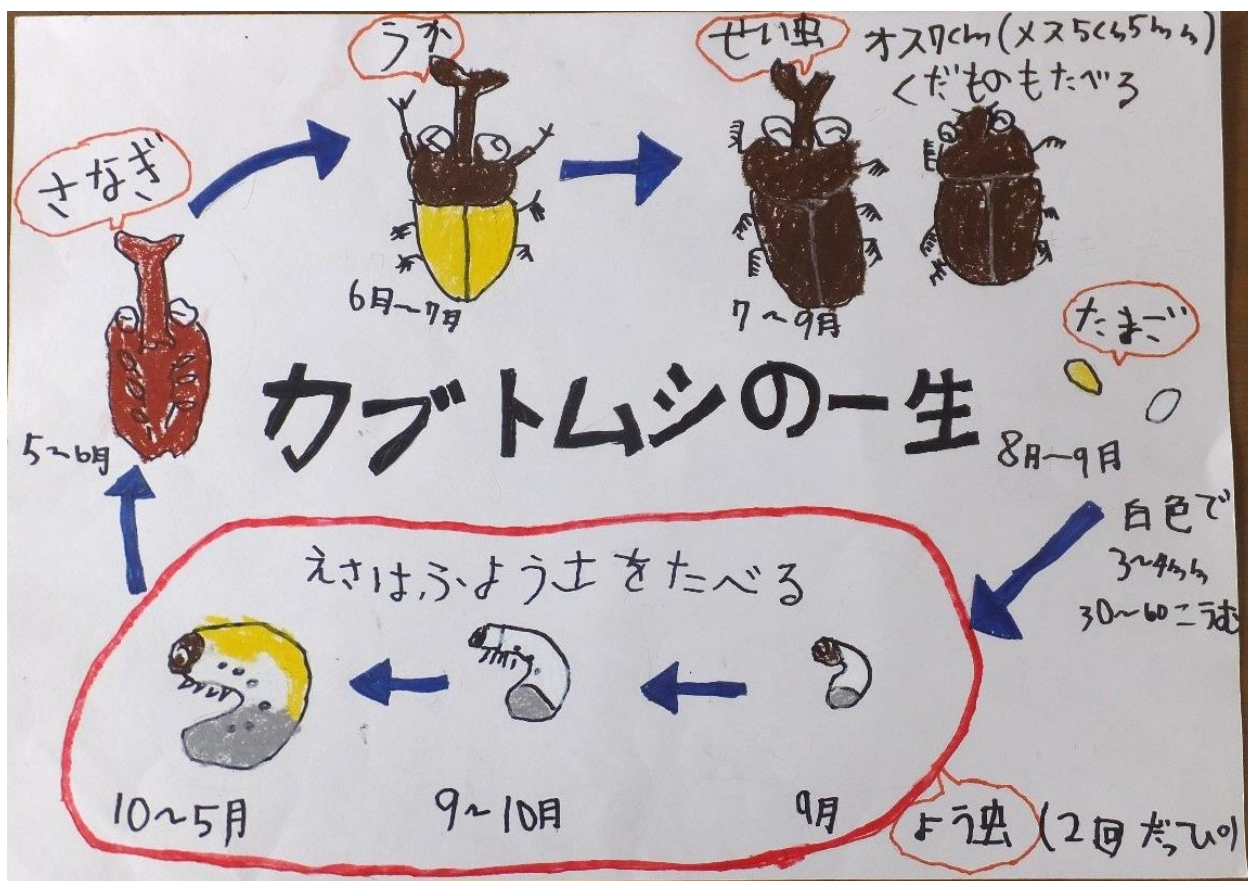 うか
せい虫
オス7cm(メス5cm5mm)
くだものもたべる
さなぎ
6月〜7月
7〜9月
たまご
カブトムシの一生
5〜6月
8月〜9月
白色で
3〜4mm
30〜60こうむ
えさは、ふよう土をたべる
10〜5月
9〜10月
9月
よう虫(2回だっぴ)